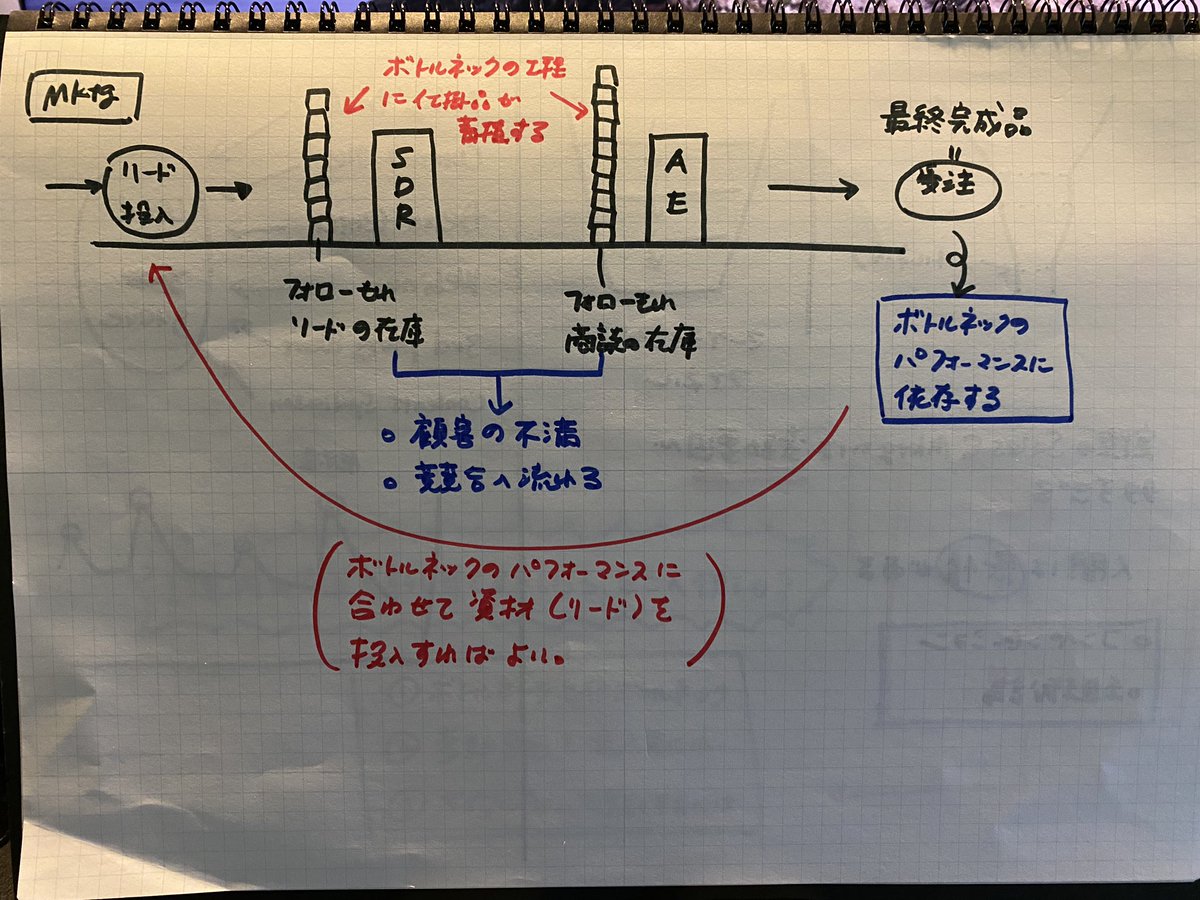 Mktg
リード
投入
ボトルネックの工程
に仕掛品が
蓄積する
SDR
AE
最終完成品
=
受注
フォローもれ
リードの在庫
フォローもれ
商談の在庫
ボトルネックの
パフォーマンスに
依存する
○ 顧客の不満
○ 競合へ流れる
(ボトルネックのパフォーマンスに
合わせて資材(リード)を
投入すればよい。)